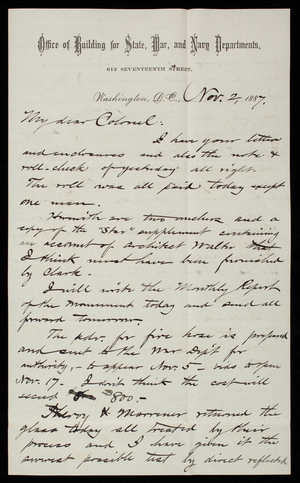 Office of Building for State, War, and Navy Departments,
612 SEVENTEENTH STREET,
Washington, D.C., Nov. 2, 1887.
My dear Colonel:
I have your letter
and enclosures and also the note &
roll-check of yesterday all right.
The roll was all paid today except
one man.
Herewith are two vouchers and a
copy of the "Star" supplement containing
an account of Architect Walter that
I think must have been furnished
by Clark.
I will write the Monthly Report
of the Monument today and send all
forward tomorrow.
The adv. for fire hose is prepared
and sent to the War Dep't for
authority, - to appear Nov. 5 - bids to open
Nov. 17. - I don't think the cost will
exceed 800.-
& returned the
glass today all treated by their
process and I have given it the
severest possible test by direct reflected